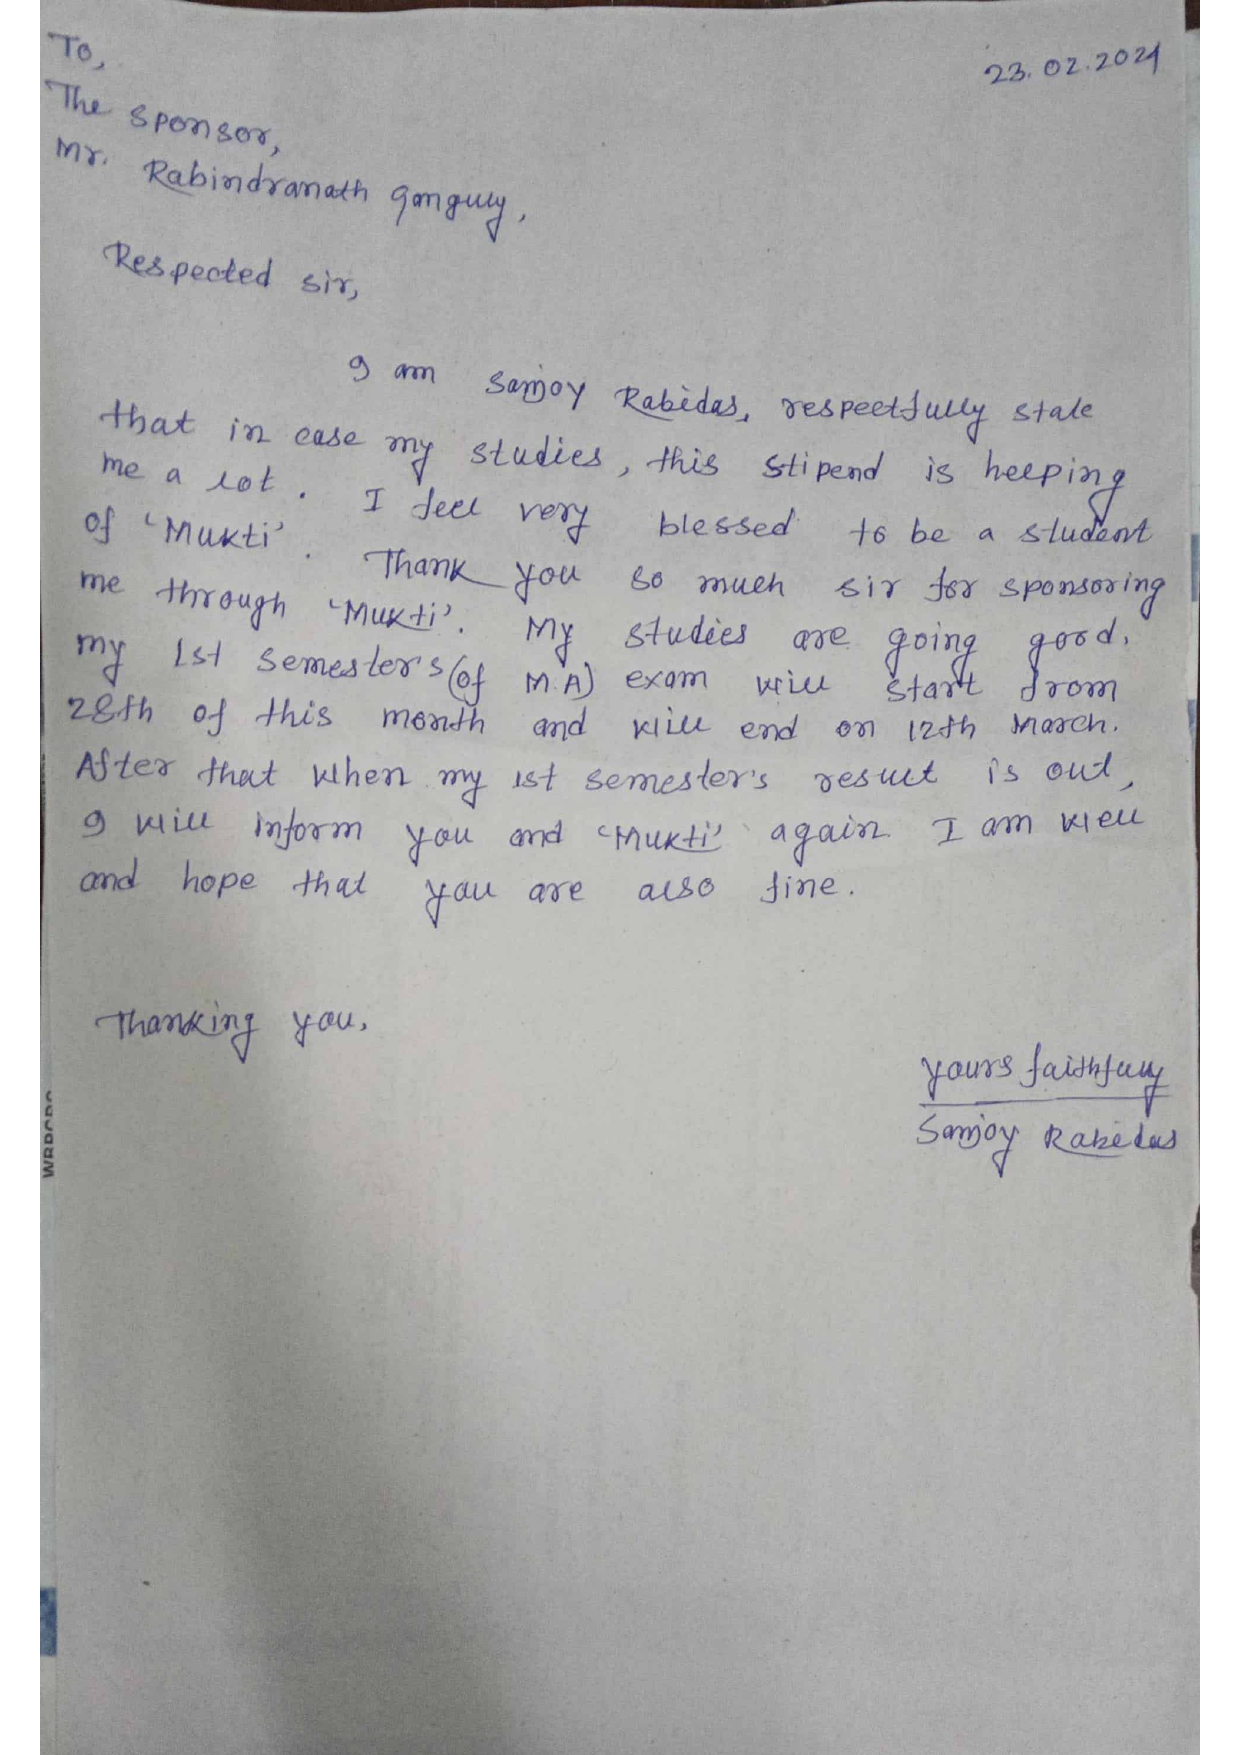 To,
23.02.2024
The Sponsor,
Mr. Rabindranath Ganguly,
Respected sir,
I am Sanjoy Rabidas, respectfully state
that in case my studies, this stipend is helping
me a lot. I feel very blessed to be a student
of 'Mukti'. Thank you so much sir for sponsoring
me through 'Mukti'. My studies are going good.
my 1st semester's (of M.A) exam will start from
28th of this month and will end on 12th March.
After that when my 1st semester's result is out,
I will inform you and 'Mukti' again. I am well
and hope that you are also fine.
Thanking you.
yours faithfully
Sanjoy Rabidas